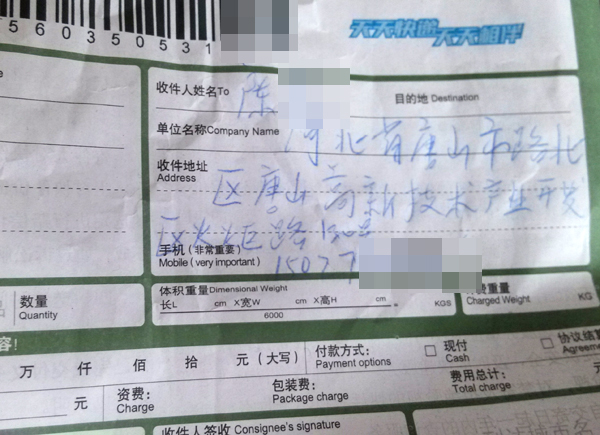 560350531
天天快递 天天相伴
收件人姓名To 陈
目的地 Destination
单位名称Company Name 河北省唐山市路北
收件地址
Address 区唐山高新技术产业开发
区火炬路150号
手机(非常重要)
Mobile (very important) 15077
数量
Quantity
体积重量Dimensional Weight
长L cm X宽W cm X高H cm = KGS
6000
费重量
Charged Weight KG
容!
万 仟 佰 拾 元(大写)
付款方式: □ 现付 □ 协议结
Payment options Cash Agreeme
元 资费: 包装费: 费用总计: 元
Charge Package charge Total charge
收件人签收 Consignee's signature